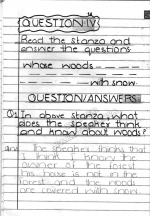 QUESTION IV
Read the stanza and
answer the questions
whose woods
with snow.
QUESTION/ANSWERS
Q1 In above stanza, what
does the speaker think
and know about woods?
Ans The speaker thinks that
I think I know the
owner of the forest
his house is not in the
forest and the woods
are covered with snow